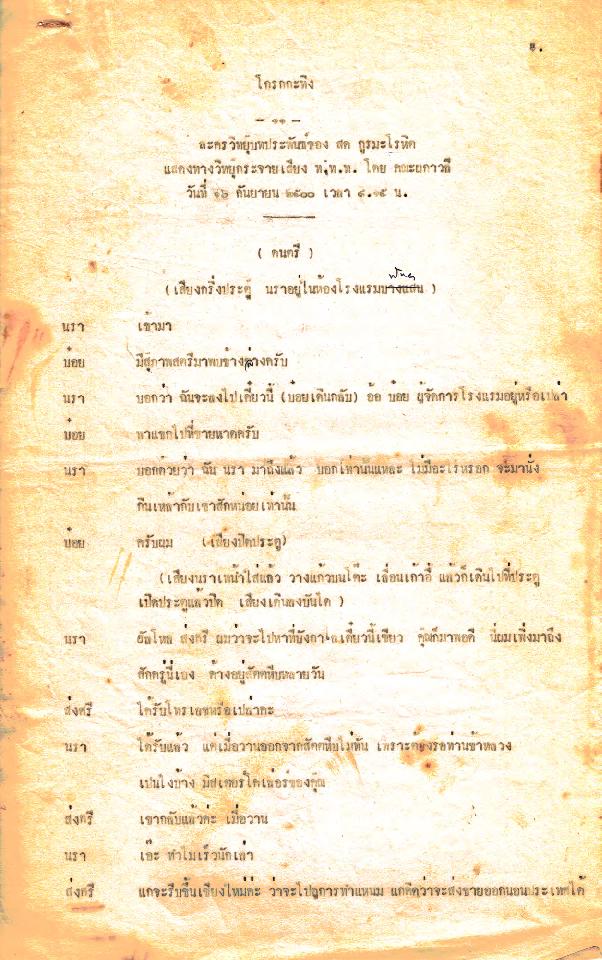 ๑.
โตรกกะทิง
— ๑๑ —
ละครวิทยุบทประพันธ์ของ สด กูรมะโรหิต
แสดงทางวิทยุกระจายเสียง ท.ท.ท. โดย คณะผกาวลี
วันที่ ๑๖ กันยายน ๒๕๐๐ เวลา ๙.๑๕ น.
( ดนตรี )
(เสียงกริ่งประตู นราอยู่ในห้องโรงแรมบางแสน )
นรา เข้ามา
บ๋อย มีสุภาพสตรีมาพบข้างล่างครับ
นรา บอกว่า ฉันจะลงไปเดี๋ยวนี้ (บ๋อยเดินกลับ) อ้อ บ๋อย ผู้จัดการโรงแรมอยู่หรือเปล่า
บ๋อย พาแขกไปที่ชายหาดครับ
นรา บอกด้วยว่า ฉัน นรา มาถึงแล้ว บอกเท่านั้นแหละ ไม่มีอะไรหรอก จะมานั่ง
กินเหล้ากับเขาสักหน่อยเท่านั้น
บ๋อย ครับผม (เสียงปิดประตู)
(เสียงนราเทน้ำใส่แล้ว วางแก้วบนโต๊ะ เลื่อนเก้าอี้ แล้วก็เดินไปที่ประตู
เปิดประตูแล้วปิด เสียงเดินลงบันได )
นรา ฮัลโหล ส่งศรี ผมว่าจะไปหาที่บังกาโลเดี๋ยวนี้เชียว คุณก็มาพอดี นี่ผมเพิ่งมาถึง
สักครู่นี้เอง ค้างอยู่สัตตหีบหลายวัน
ส่งศรี ได้รับโทรเลขหรือเปล่าคะ
นรา ได้รับแล้ว แต่เมื่อวานออกจากสัตตหีบไม่ทัน เพราะต้องรอท่านข้าหลวง
เปนไงบ้าง มิสเตอร์โคเล่อร์ของคุณ
ส่งศรี เขากลับแล้วค่ะ เมื่อวาน
นรา เอ๊ะ ทำไมเร็วนักเล่า
ส่งศรี แกจะรีบขึ้นเชียงใหม่ค่ะ ว่าจะไปดูการทำแหนม แกคิดว่าจะส่งขายออกนอนประเทศได้